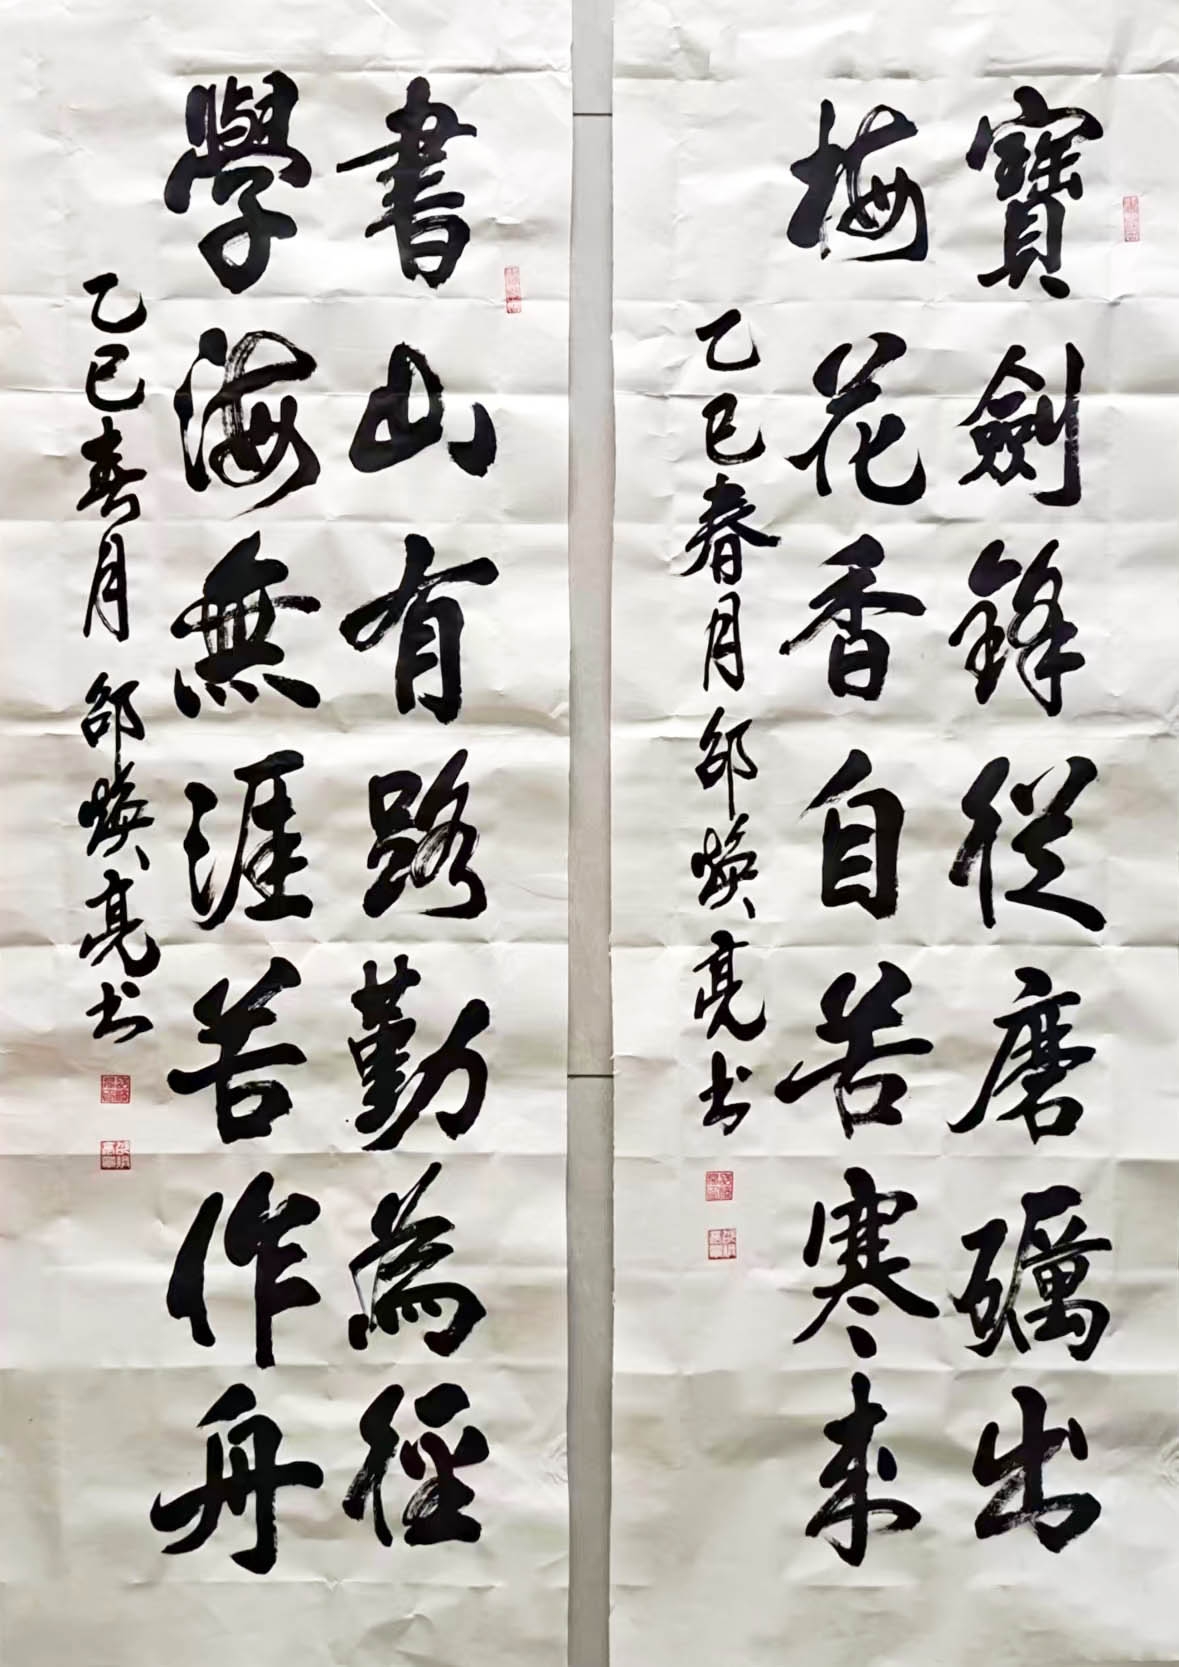 寶劍鋒從磨礪出
梅花香自苦寒來
乙巳春月邵煥亮书
書山有路勤為徑
學海無涯苦作舟
乙巳春月邵煥亮书